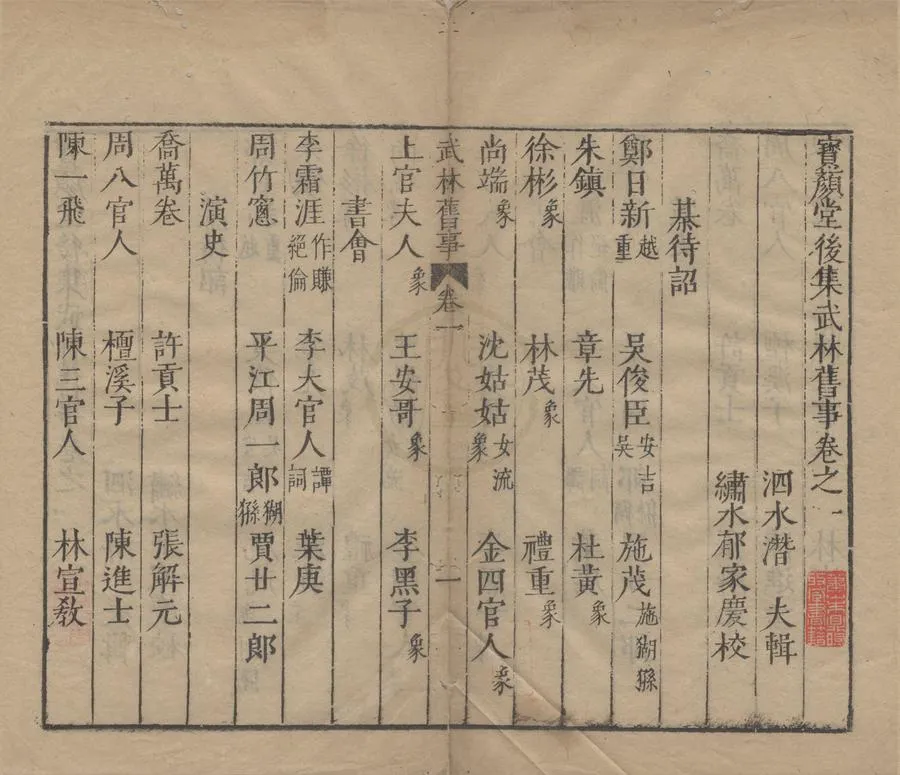 寶顏堂後集武林舊事卷之一
泗水潛　夫輯
繡水郁家慶校
棊待詔
鄭日新越童　吳俊臣安吉吳　施茂施猢猻
朱鎮　章先　杜黃象
徐彬象　林茂象　禮重象
尚端象　沈姑姑女流象　金四官人象
武林舊事　卷一　一
上官夫人象　王安哥象　李黑子象
書會
李霜涯作賺絕倫　李大官人譚詞　葉庚
周竹窻　平江周一郎猢猻　賈廿二郎
演史
喬萬卷　許貢士　張解元
周八官人　檀溪子　陳進士
陳一飛　陳三官人　林宣教